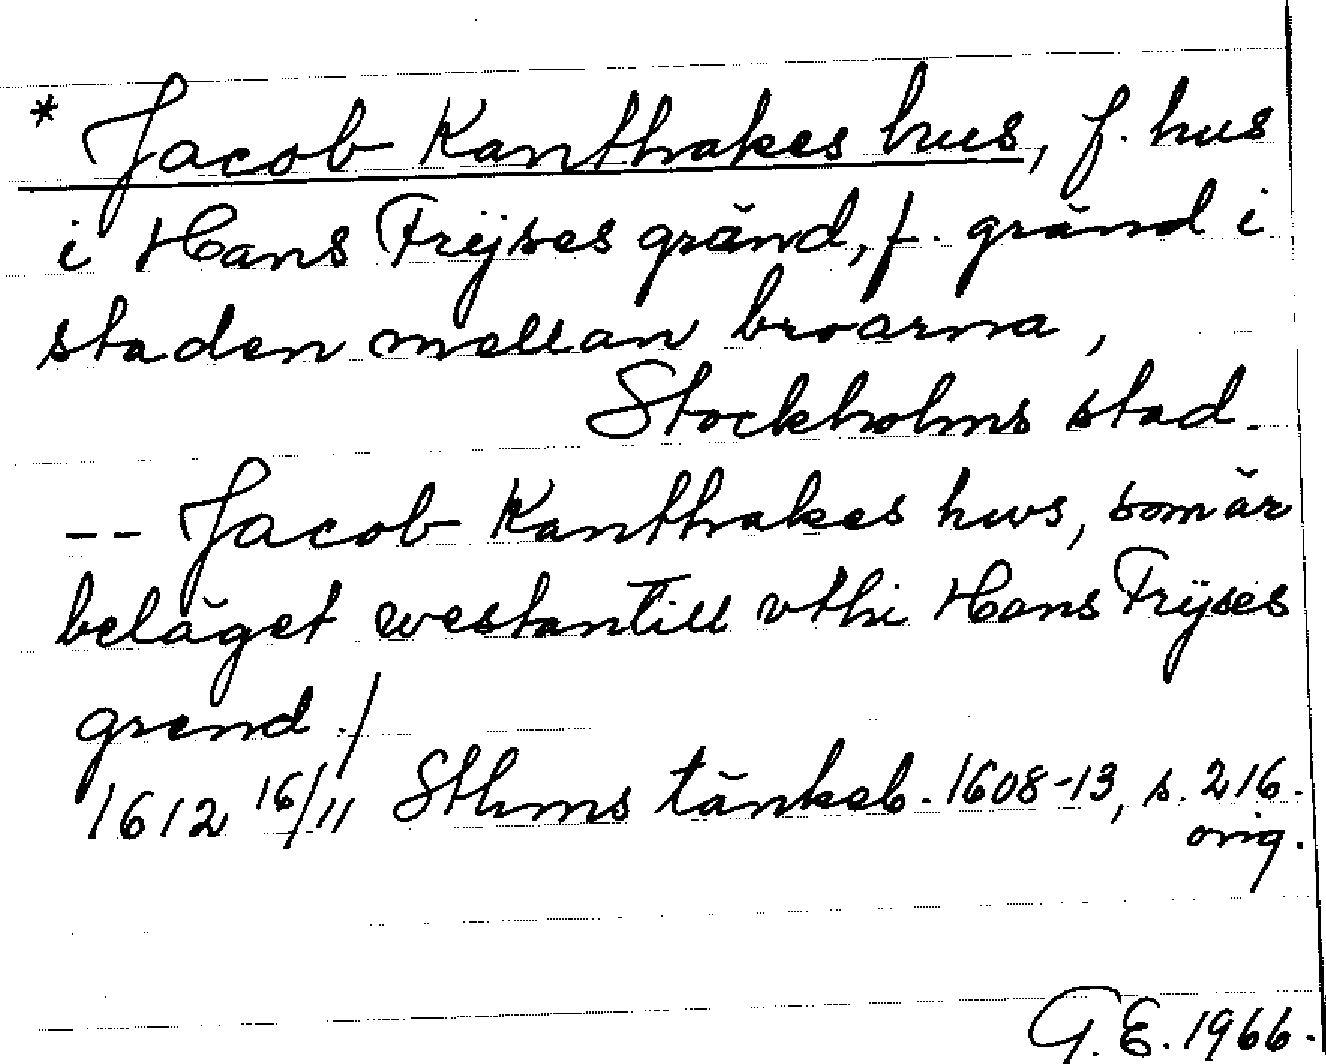 * Jacob Kanthakes hus, f. hus
i Hans Frijses gränd, f. gränd i
staden mellan broarna,
Stockholms stad.
-- Jacob Kanthakes hws, som är
beläget westantill vthi Hans Frijses
grend./
1612 16/11 Sthms tänkeb. 1608-13, s. 216.
orig.
G.E. 1966.